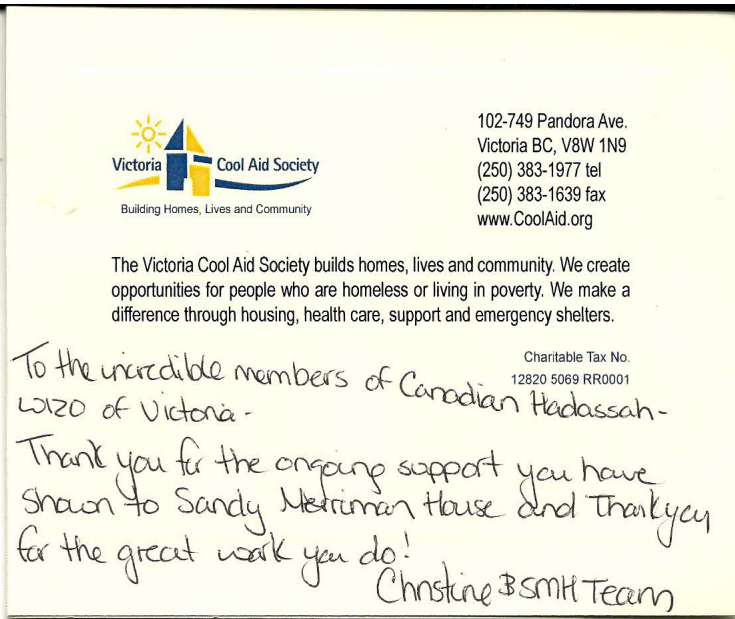 Victoria Cool Aid Society
Building Homes, Lives and Community
102-749 Pandora Ave.
Victoria BC, V8W 1N9
(250) 383-1977 tel
(250) 383-1639 fax
www.CoolAid.org
The Victoria Cool Aid Society builds homes, lives and community. We create
opportunities for people who are homeless or living in poverty. We make a
difference through housing, health care, support and emergency shelters.
Charitable Tax No.
12820 5069 RR0001
To the incredible members of Canadian Hadassah-
WIZO of Victoria -
Thank you for the ongoing support you have
shown to Sandy Merriman House and Thankyou
for the great work you do!
Christine & SMH Team